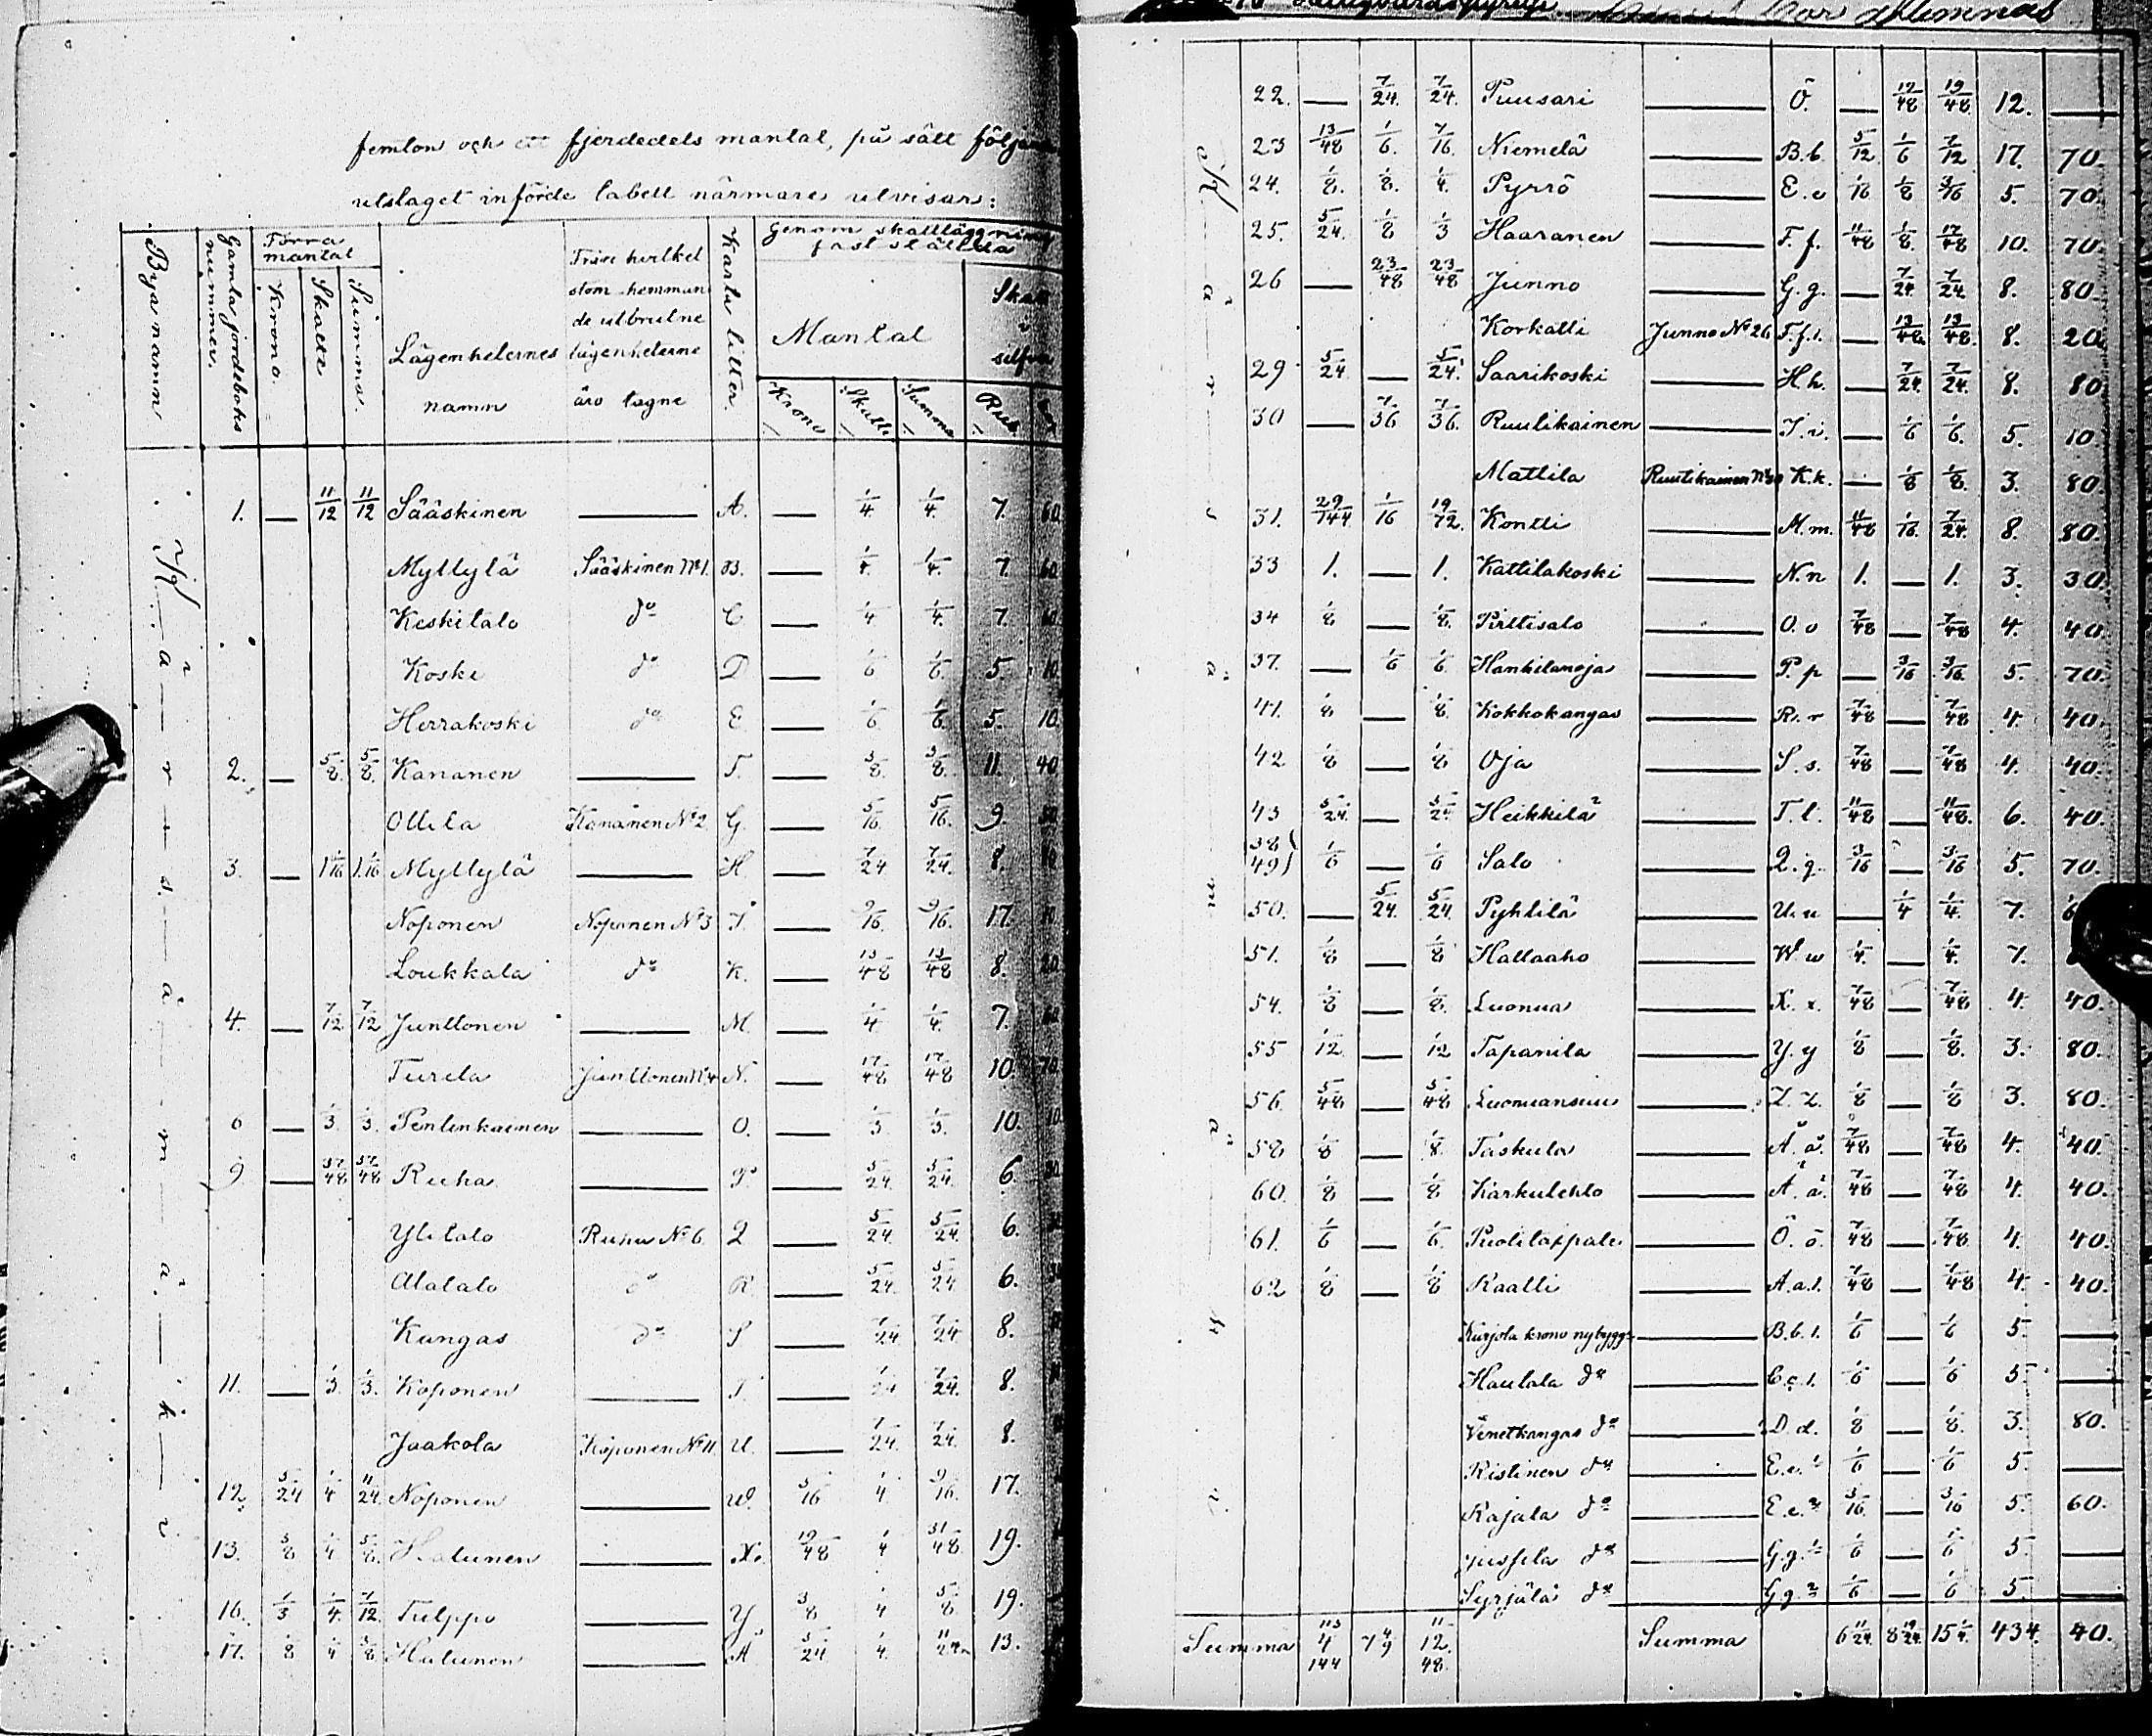 femton och ett fjerdedels mantal, på sätt följande
utslaget införde tabell närmare utvisar:
Byanamn
Gamla jordeboks nummer.
Förra mantal
Krono.
Skatte
Summa.
Lägenheternes namn
Från hvilket stom hemman de utbrutne lägenheterne äro tagne
Karta litter.
Genom skattläggning fastställda
Mantal
Krono
Skatte
Summa
Skatt i silfver
Rub.
1. — 11/12 11/12 Sääskinen — A. — 1/4. 1/4. 7. 60
Myllylä Sääskinen No 1. B. — 1/4. 1/4. 7. 60
Keskitalo do C. — 1/4 1/4. 7. 60
Koski do D — 1/6 1/6. 5. 10
Herrakoski do E — 1/6 1/6. 5. 10.
2. — 5/8. 5/8. Kananen — F. — 3/8. 3/8. 11. 40
Ollila Kananen No 2 G. — 5/16. 5/16. 9.
3. — 1 1/16 1. 1/16 Myllylä — H. — 7/24 7/24. 8.
Noponen Noponen No 3 I. — 9/16. 9/16. 17.
Loukkala do K. — 13/48 13/48 8. 20
4. — 7/12 7/12 Junttonen — M. — 1/4 1/4. 7. 60
Turela Junttonen No 4 N. — 17/48 17/48 10. 70
6 — 1/3. 1/3. Pentinkainen — O. — 1/3 1/3. 10. 10
9 — 37/48 37/48 Ruha — P — 5/24 5/24. 6
Ylitalo Ruha No 6. Q — 5/24. 5/24. 6.
Alatalo do R — 5/24. 5/24 6.
Kangas do S — 7/24 7/24 8.
11. — 1/3. 1/3. Koponen — T — 7/24 7/24. 8.
Jaakola Koponen No 11. U. — 7/24. 7/24. 8.
12. 5/24 1/4 11/24 Noponen — W. 5/16 1/4. 9/16. 17.
13. 3/8 1/4 5/8. Halunen — X. 19/48 1/4 31/48. 19.
16. 1/3 1/4. 7/12 Tulppo — Y 3/8 1/4 5/8 19.
17. 1/8 1/4 3/8 Halunen — Å 5/24 1/4. 11/24 13.
22. — 7/24. 7/24. Puusari — Ö. — 19/48 19/48 12. —
23 13/48 1/6. 7/16. Niemelä — B.b. 5/12. 1/6 7/12 17. 70.
24. 1/8. 1/8. 1/4. Pyrrö — E.e 1/16 1/8 3/16 5. 70.
25. 5/24. 1/8 1/3 Haaranen — F.f. 11/48 1/8. 17/48 10. 70.
26 — 23/48 23/48 Junno — G.g. — 7/24. 7/24 8. 80.
Korkatti Junno No 26 F.f.1. — 13/48. 13/48. 8. 20.
29 5/24 — 5/24. Saarikoski — H.h. — 7/24. 7/24. 8. 80
30 — 7/36 7/36. Ruutikainen — I.i. — 1/6 1/6. 5. 10.
Mattila Ruutikainen No 30 K.k. — 1/8 1/8. 3. 80.
31. 29/144 1/16 19/72. Kontti — M.m. 11/48 1/16. 7/24. 8. 80.
33 1. — 1. Kattilakoski — N.n 1. — 1. 3. 30.
34 1/8 — 1/8. Pirttisalo — O.o 7/48 — 7/48 4. 40.
37. — 1/6 1/6. Hankilanoja — P.p — 3/16 3/16. 5. 70.
41. 1/8 — 1/8. Kokkokangas — R.r 7/48 — 7/48 4. 40.
42 1/8 — 1/8 Oja — S.s. 7/48 — 7/48 4. 40.
43 5/24. — 5/24 Heikkilä — T.t. 11/48 — 11/48. 6. 40.
38
49 1/6 — 1/6 Salo — Q.q. 3/16 — 3/16 5. 70.
50. — 5/24. 5/24. Pyhtilä — U.u — 1/4 1/4. 7.
51. 1/8 — 1/8 Hallaaho — W.w 1/4. — 1/4. 7.
54. 1/8 — 1/8. Luonua — X.x. 7/48 — 7/48 4. 40.
55 1/12 — 1/12 Tapanila — Y.y 1/8 — 1/8. 3. 80.
56. 5/48 — 5/48 Luonuansuu — Z.z. 1/8 — 1/8 3. 80.
58 1/8 — 1/8. Taskula — Å.å. 7/48 — 7/48 4. 40.
60. 1/8 — 1/8 Karkulehto — Ä.ä. 7/48 — 7/48 4. 40.
61. 1/6 — 1/6. Puolitaipale — Ö.ö. 7/48 — 7/48 4. 40.
62 1/8 — 1/8 Raatti — A.a.1. 7/48 — 7/48 4. 40.
Kurjola krono nybygge — B.b.1. 1/6 — 1/6 5. —
Hautala do — C.c.1. 1/6 — 1/6 5. —
Venetkangas do — D.d. 1/8 — 1/8. 3. 80.
Ristinen do — E.e.1 1/6 — 1/6 5. —
Rajala do — E.e.2 3/16. — 3/16 5. 60.
Jussila do — G.g.1 1/6 — 1/6 5. —
Syrjälä do — G.g.2 1/6 — 1/6 5. —
Summa 4 113/144 7 4/9 12. 11/48. Summa 6 11/24 8 19/24 15 1/4. 434. 40.